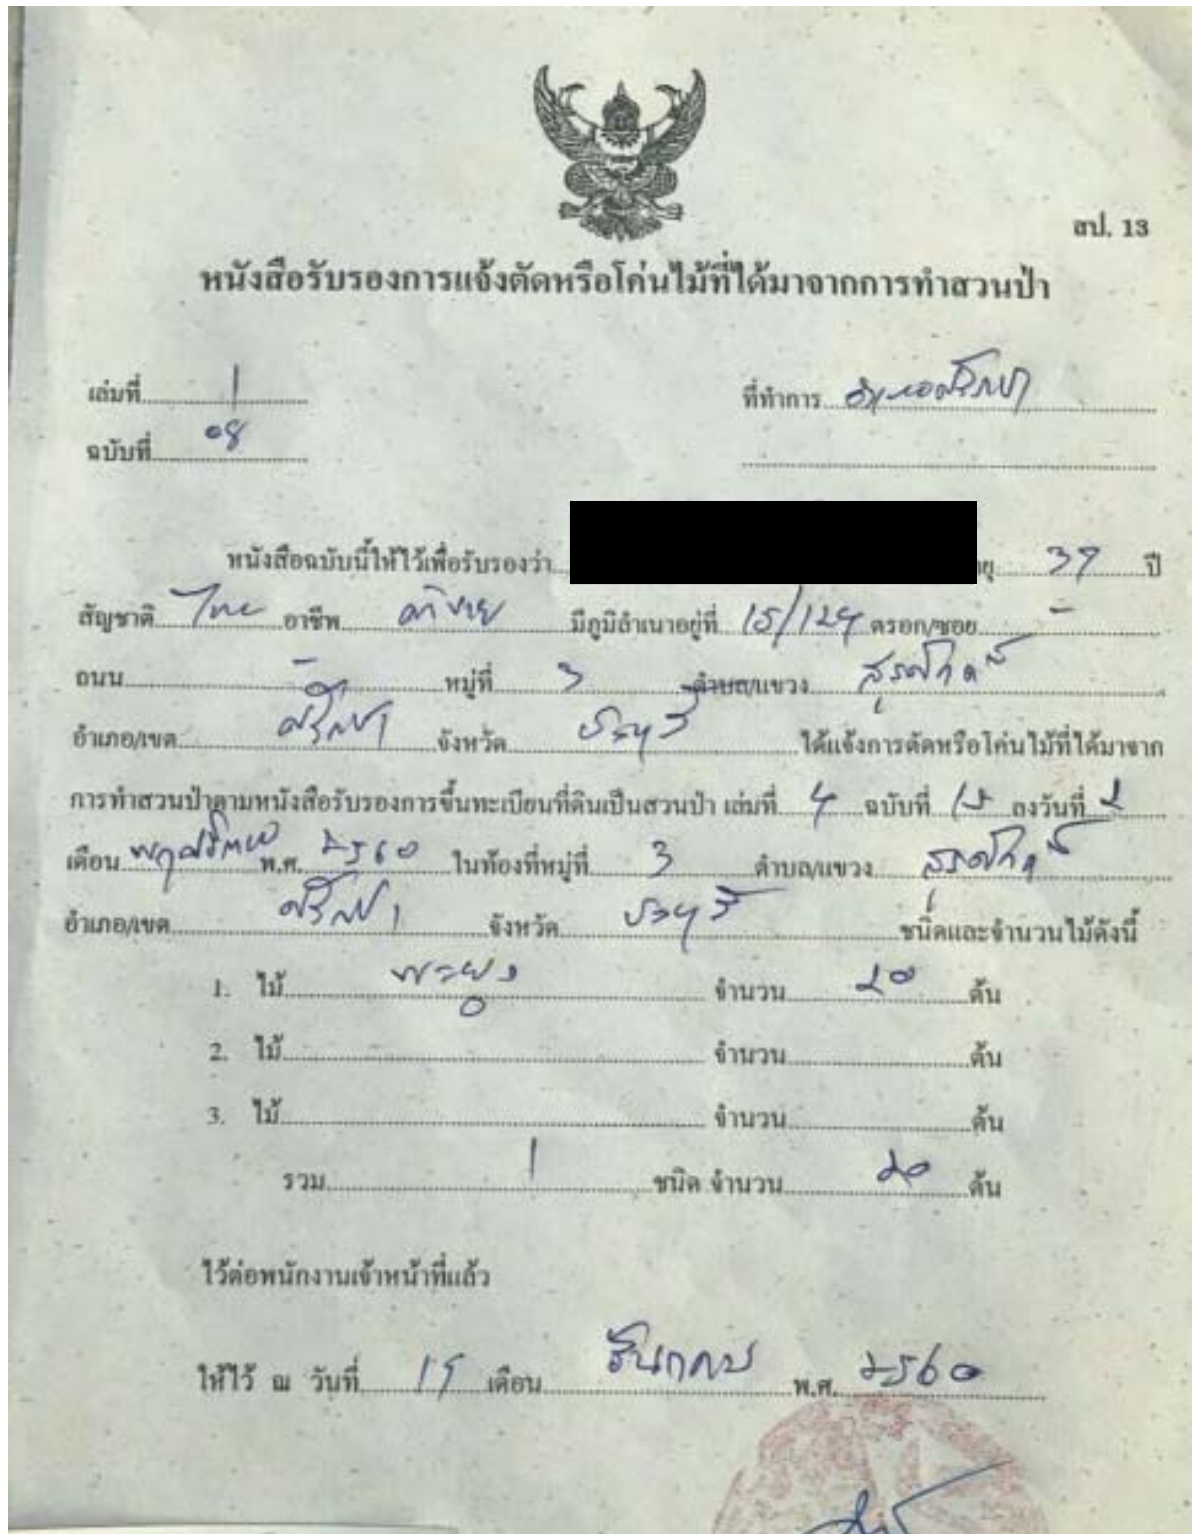 สป. 13
หนังสือรับรองการแจ้งตัดหรือโค่นไม้ที่ได้มาจากการทำสวนป่า
เล่มที่ 1 ที่ทำการ อำเภอศรีราชา
ฉบับที่ 08
หนังสือฉบับนี้ให้ไว้เพื่อรับรองว่า ยุ 37 ปี
สัญชาติ ไทย อาชีพ ค้าขาย มีภูมิลำเนาอยู่ที่ 15/124 ตรอก/ซอย -
ถนน - หมู่ที่ 3 ตำบล/แขวง สุรศักดิ์
อำเภอ/เขต ศรีราชา จังหวัด ชลบุรี ได้แจ้งการตัดหรือโค่นไม้ที่ได้มาจาก
การทำสวนป่าตามหนังสือรับรองการขึ้นทะเบียนที่ดินเป็นสวนป่า เล่มที่ 4 ฉบับที่ ลงวันที่ 2
เดือน พฤศจิกายน พ.ศ. 2560 ในท้องที่หมู่ที่ 3 ตำบล/แขวง สุรศักดิ์
อำเภอ/เขต ศรีราชา จังหวัด ชลบุรี ชนิดและจำนวนไม้ดังนี้
1. ไม้ พะยูง จำนวน 20 ต้น
2. ไม้ จำนวน ต้น
3. ไม้ จำนวน ต้น
รวม 1 ชนิด จำนวน 20 ต้น
ไว้ต่อพนักงานเจ้าหน้าที่แล้ว
ให้ไว้ ณ วันที่ 15 เดือน ธันวาคม พ.ศ. 2560